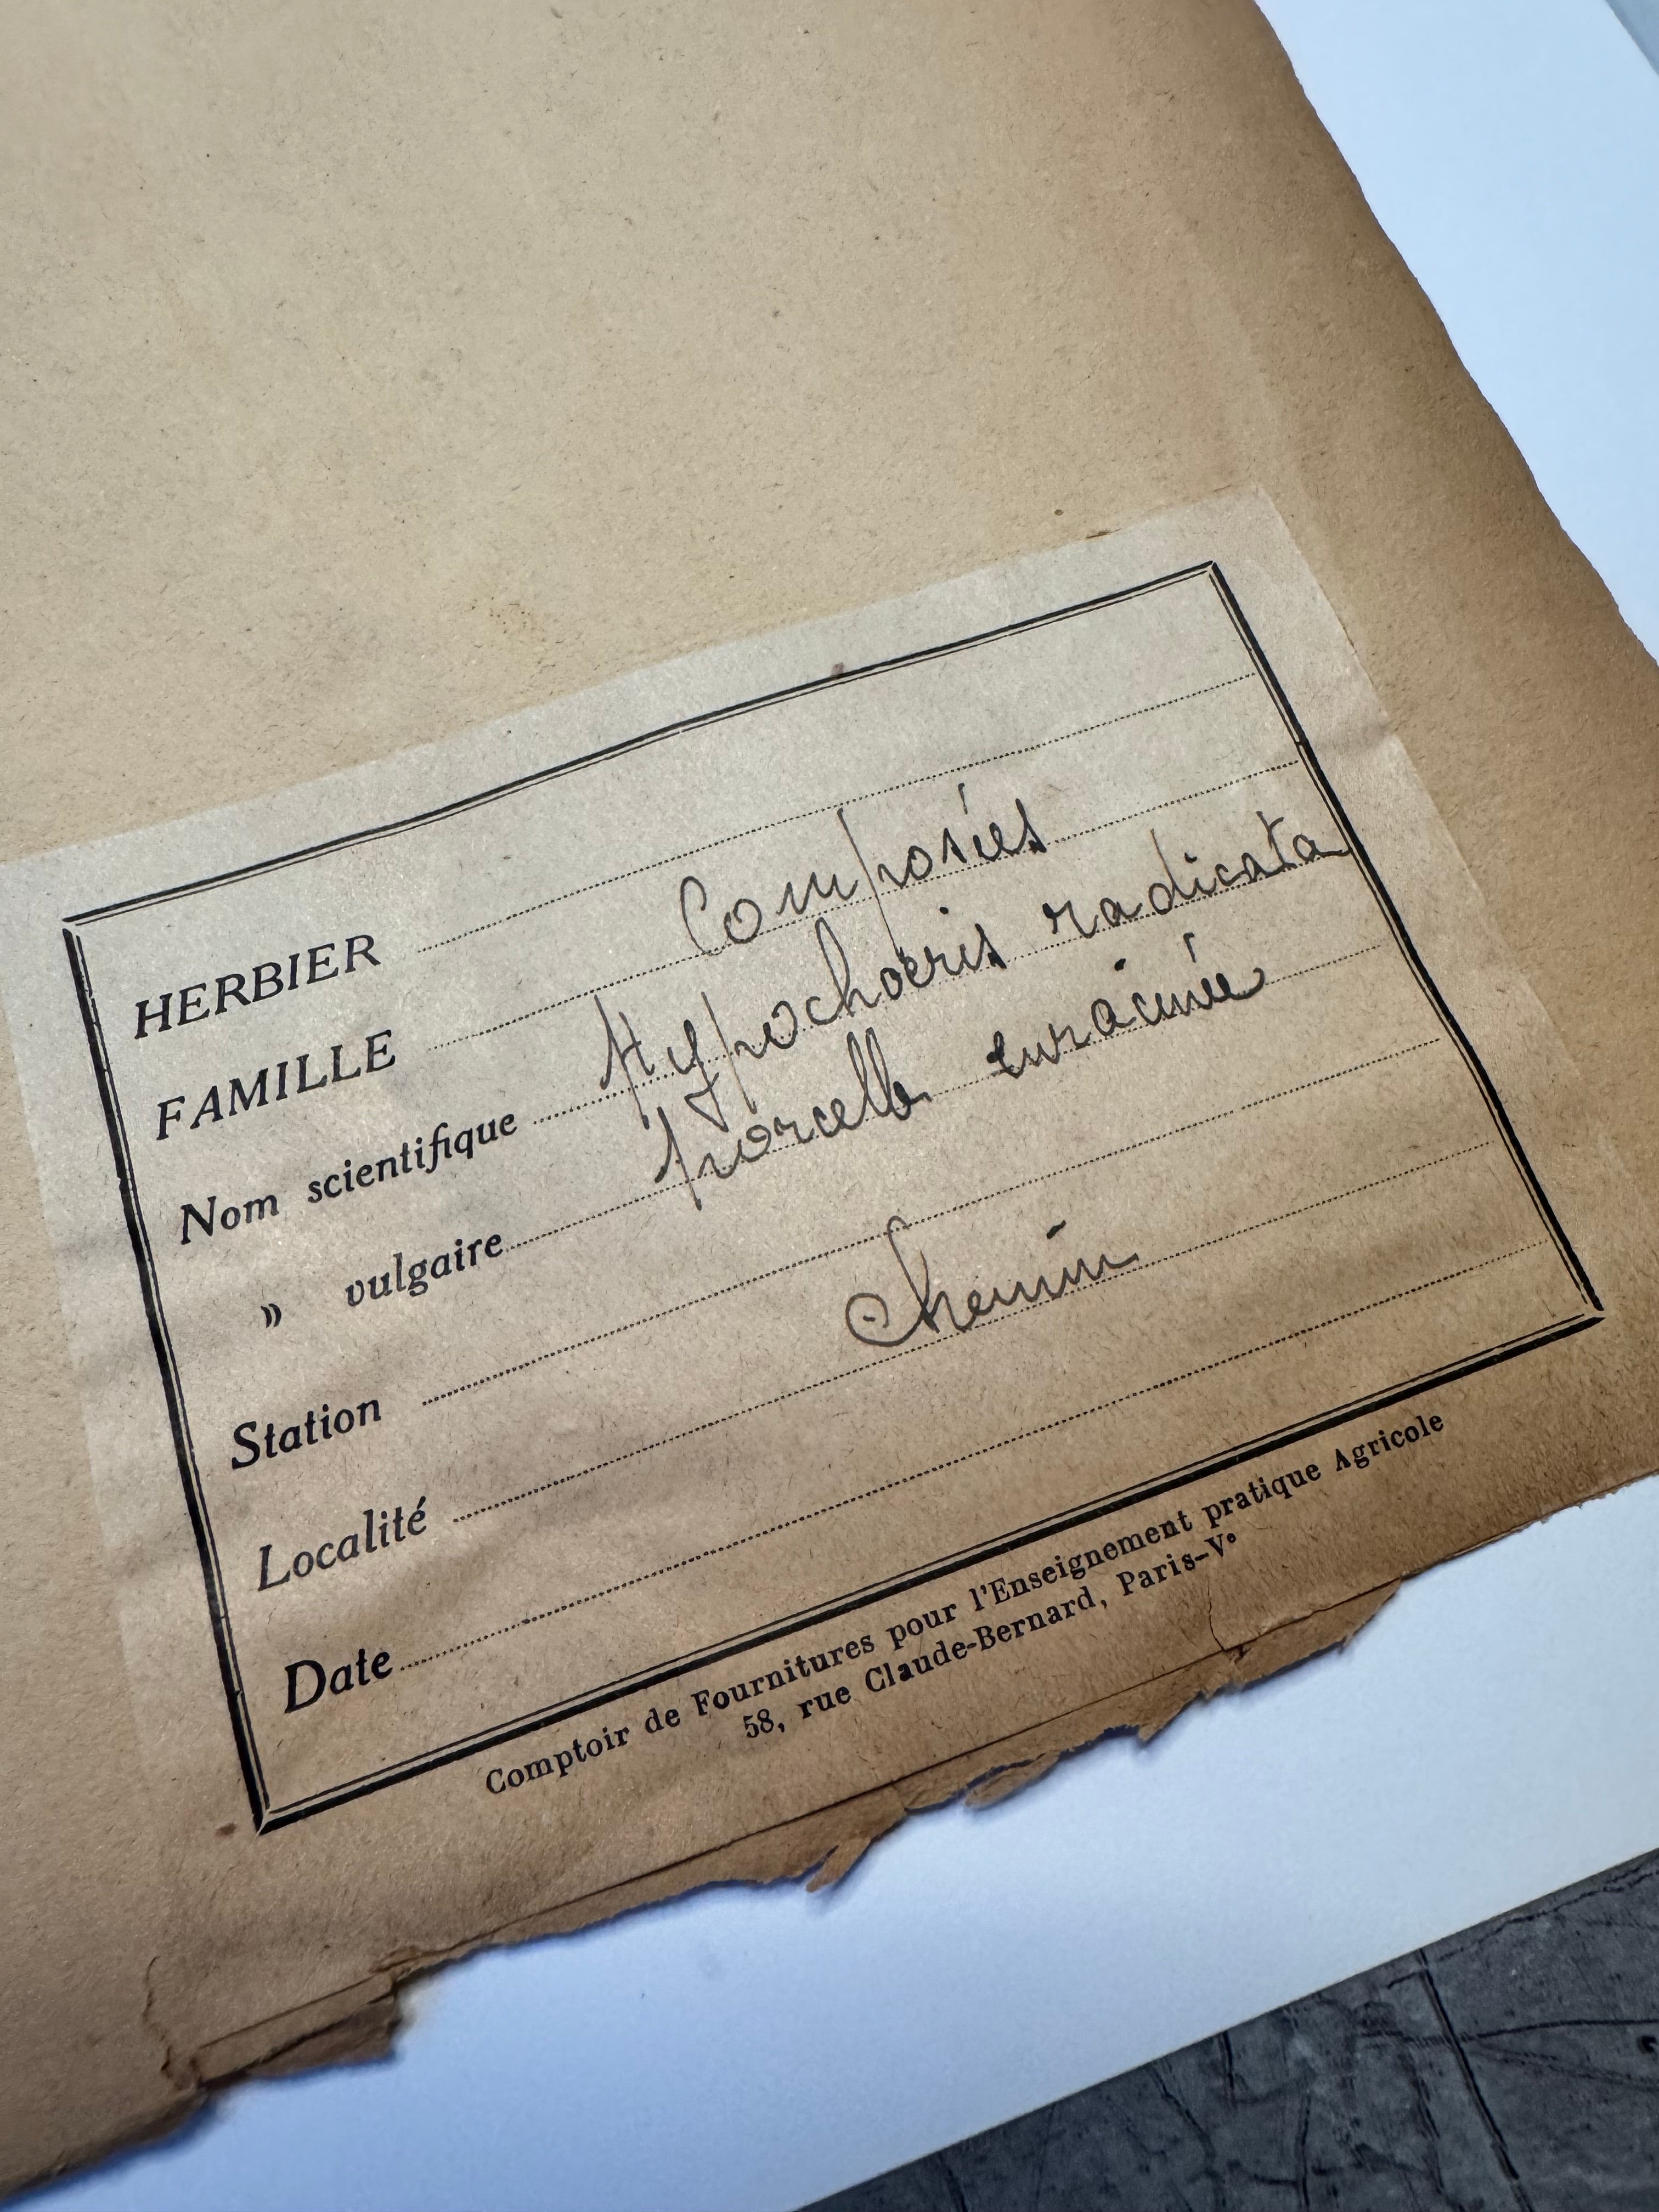 HERBIER
FAMILLE Composées
Nom scientifique Hypochoeris radicata
» vulgaire porcelle enracinée
Station
Localité Chemin
Date
Comptoir de Fournitures pour l'Enseignement pratique Agricole
58, rue Claude-Bernard, Paris-Vᵉ